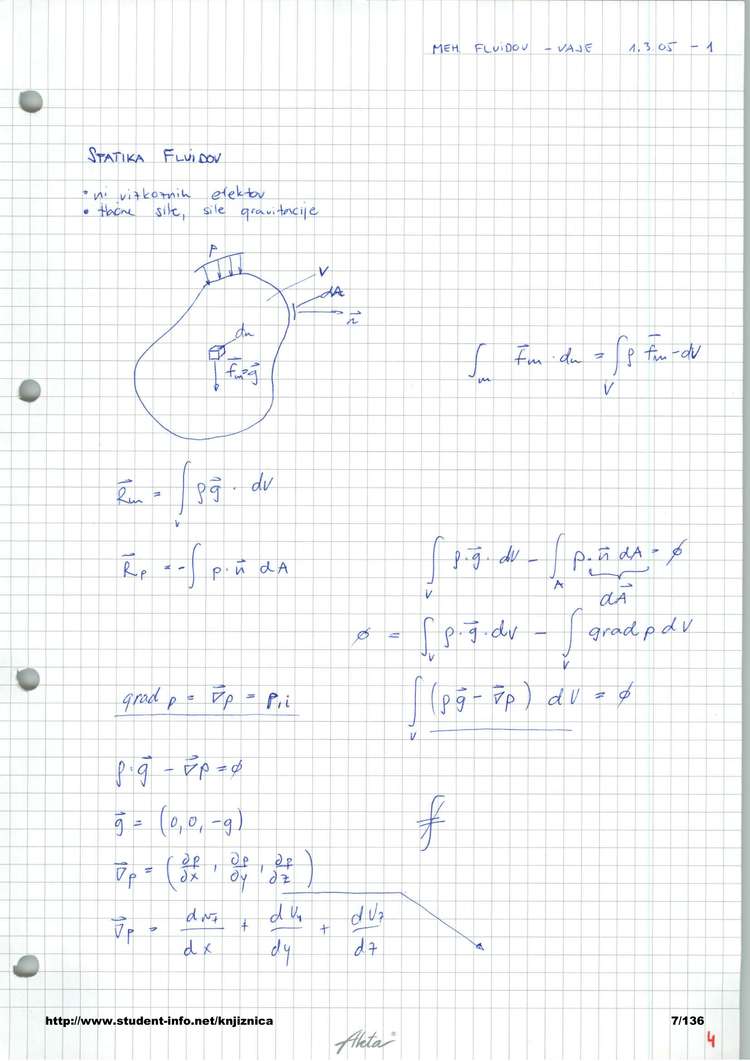 MEH FLUIDOV - VAJE 1.3.05 - 1
STATIKA FLUIDOV
• ni vizkoznih efektov
• tlačne sile, sile gravitacije
p
V
dA
n⃗
dm
f⃗m = g⃗
∫m f⃗m · dm = ∫V ρ f⃗m · dV
R⃗m = ∫V ρ g⃗ · dV
R⃗p = -∫ p · n⃗ dA
∫V ρ · g⃗ · dV - ∫A p · n⃗ dA = ∅
dA⃗
∅ = ∫V ρ · g⃗ · dV - ∫V grad p dV
grad p = ∇⃗p = p,i
∫V (ρg⃗ - ∇⃗p) dV = ∅
ρ · g⃗ - ∇⃗p = ∅
g⃗ = (0, 0, -g)
∇⃗p = (∂p/∂x, ∂p/∂y, ∂p/∂z)
∇⃗p = dvx/dx + dvy/dy + dvz/dz
http://www.student-info.net/knjiznica
7/136
4
Aleta